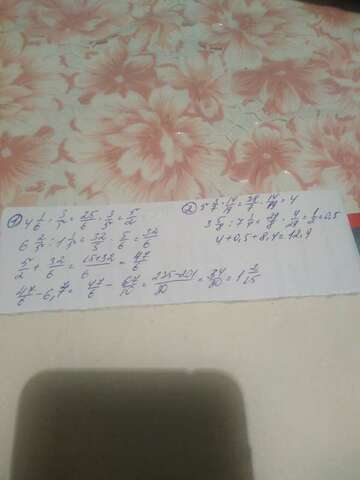 1) 4 1/6 · 3/5 = 25/6 · 3/5 = 5/2
6 2/5 : 1 1/5 = 32/5 · 5/6 = 32/6
5/2 + 32/6 = (15+32)/6 = 47/6
47/6 - 6,7 = 47/6 - 67/10 = (235-201)/30 = 34/30 = 1 2/15
2) 14/19 = 4
= 1/2 = 0,5
4 + 0,5 + 8,4 = 12,9